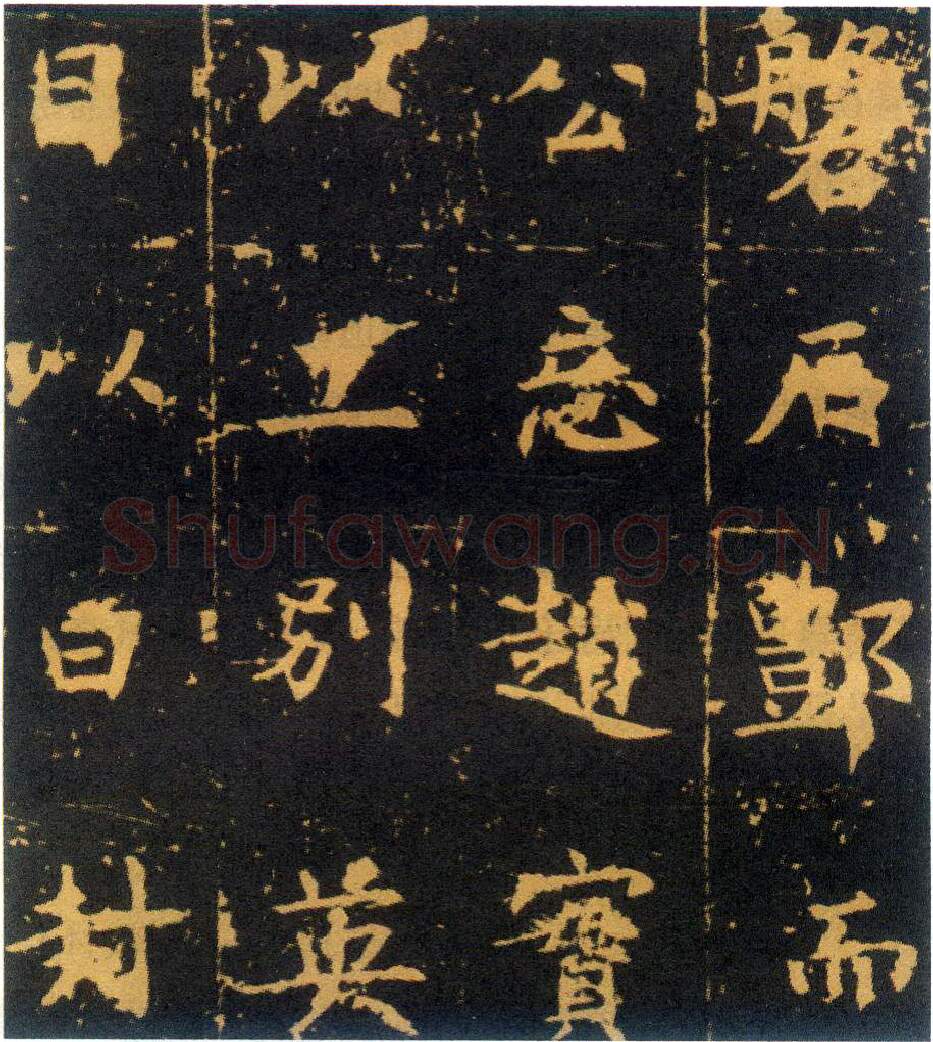 磐石而
公趙寶
以別英
日以白封
Shufawang.CN